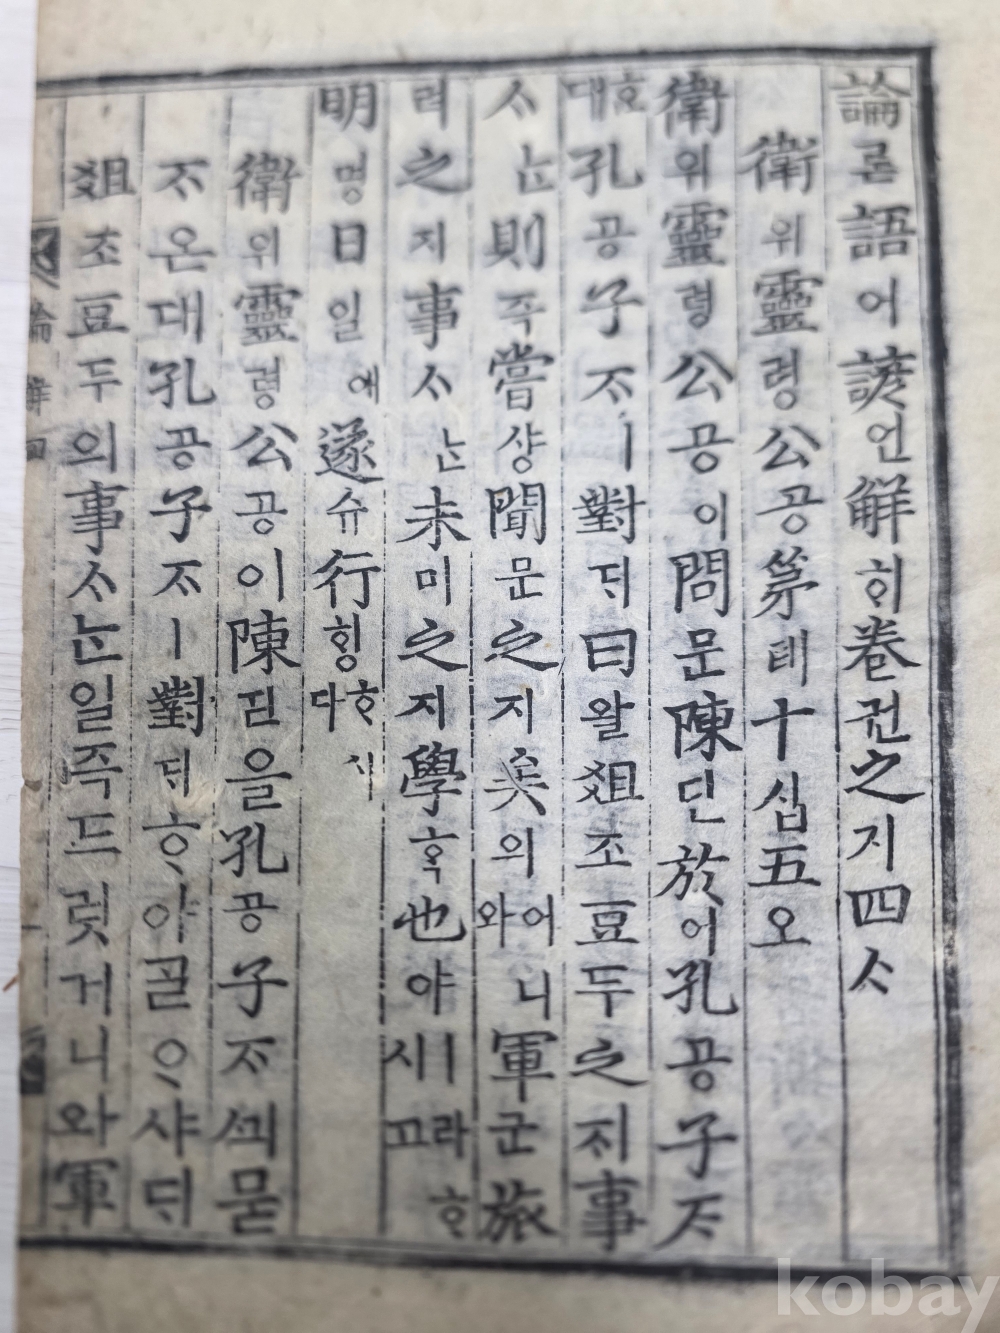 論론語어諺언解ᄒᆡ卷권之지四ᄉᆞ
衛위靈령公공第뎨十십五오
衛위靈령公공이問문陳딘於어孔공子ᄌᆞ
호대孔공子ᄌᆞㅣ對ᄃᆡ曰왈爼조豆두之지事
ᄉᆞᄂᆞᆫ則즉嘗샹聞문之지矣의어니와軍군旅
려之지事ᄉᆞᄂᆞᆫ未미之지學ᄒᆞᆨ也야ㅣ라ᄒᆞ시고
明명日일에遂슈行ᄒᆡᆼᄒᆞ시다
衛위靈령公공이陳딘을孔공子ᄌᆞᄭᅴ묻
ᄌᆞ온대孔공子ᄌᆞㅣ對ᄃᆡᄒᆞ야골ᄋᆞ샤ᄃᆡ
爼조豆두의事ᄉᆞᄂᆞᆫ일즉드럿거니와軍
kobay